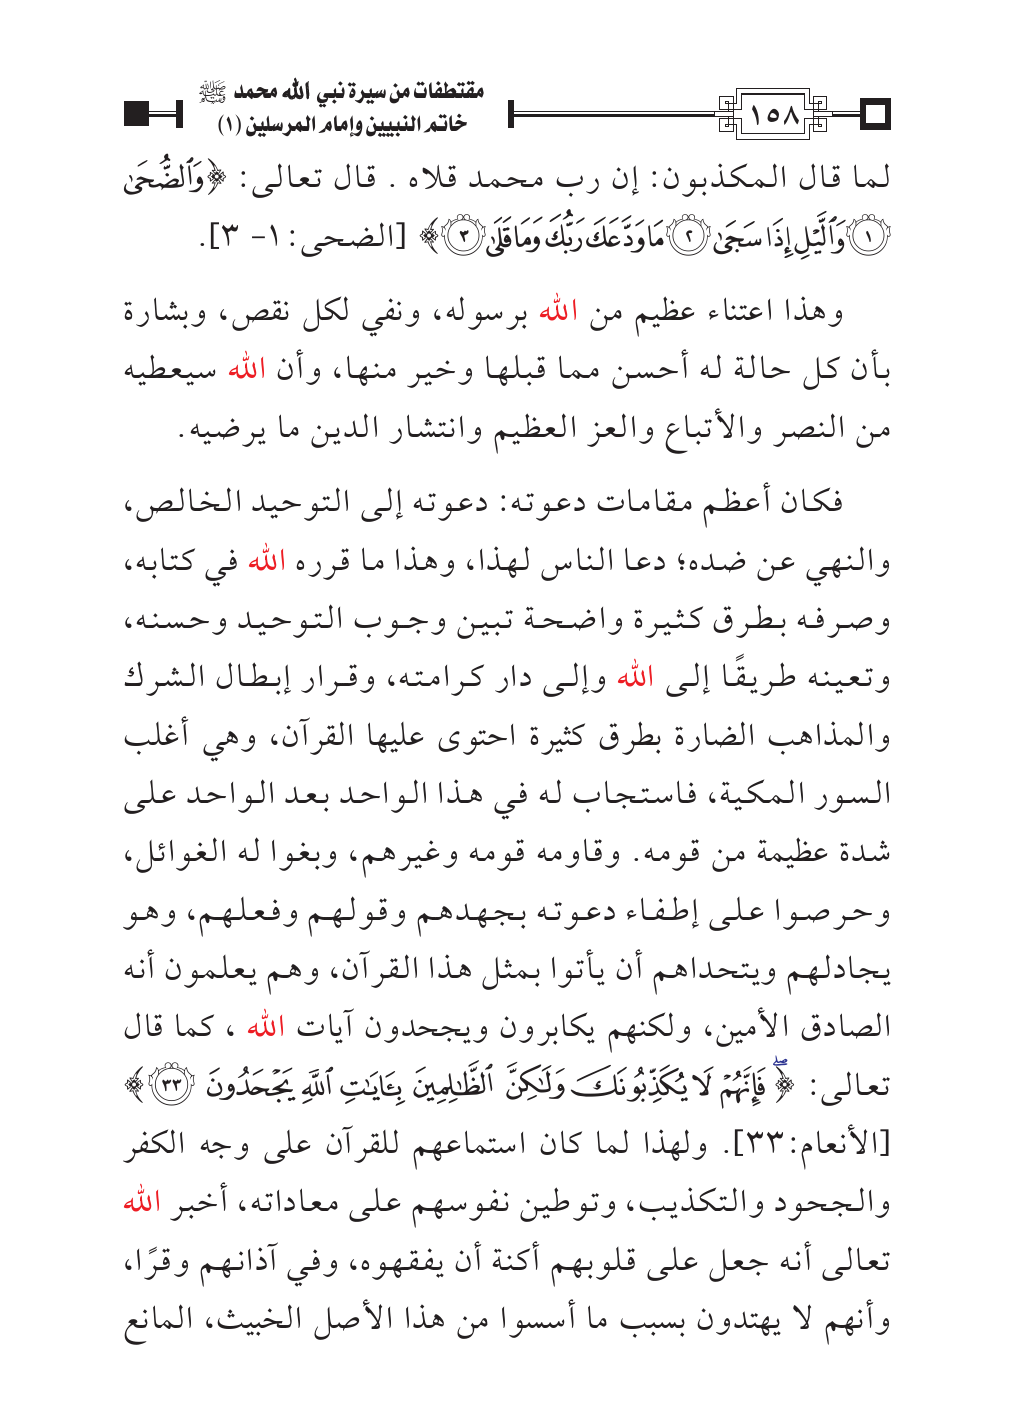 ١٥٨
مقتطفات من سيرة نبي الله محمد ﷺ
خاتم النبيين وإمام المرسلين (١)
لما قال المكذبون: إن رب محمد قلاه . قال تعالى: ﴿وَٱلضُّحَىٰ
١ وَٱلَّيْلِ إِذَا سَجَىٰ ٢ مَا وَدَّعَكَ رَبُّكَ وَمَا قَلَىٰ ٣﴾ [الضحى: ١- ٣].
وهذا اعتناء عظيم من الله برسوله، ونفي لكل نقص، وبشارة
بأن كل حالة له أحسن مما قبلها وخير منها، وأن الله سيعطيه
من النصر والأتباع والعز العظيم وانتشار الدين ما يرضيه.
فكان أعظم مقامات دعوته: دعوته إلى التوحيد الخالص،
والنهي عن ضده؛ دعا الناس لهذا، وهذا ما قرره الله في كتابه،
وصرفه بطرق كثيرة واضحة تبين وجوب التوحيد وحسنه،
وتعينه طريقًا إلى الله وإلى دار كرامته، وقرار إبطال الشرك
والمذاهب الضارة بطرق كثيرة احتوى عليها القرآن، وهي أغلب
السور المكية، فاستجاب له في هذا الواحد بعد الواحد على
شدة عظيمة من قومه. وقاومه قومه وغيرهم، وبغوا له الغوائل،
وحرصوا على إطفاء دعوته بجهدهم وقولهم وفعلهم، وهو
يجادلهم ويتحداهم أن يأتوا بمثل هذا القرآن، وهم يعلمون أنه
الصادق الأمين، ولكنهم يكابرون ويجحدون آيات الله ، كما قال
تعالى: ﴿ۖ فَإِنَّهُمْ لَا يُكَذِّبُونَكَ وَلَٰكِنَّ ٱلظَّٰلِمِينَ بِـَٔايَٰتِ ٱللَّهِ يَجْحَدُونَ ٣٣﴾
[الأنعام:٣٣]. ولهذا لما كان استماعهم للقرآن على وجه الكفر
والجحود والتكذيب، وتوطين نفوسهم على معاداته، أخبر الله
تعالى أنه جعل على قلوبهم أكنة أن يفقهوه، وفي آذانهم وقرًا،
وأنهم لا يهتدون بسبب ما أسسوا من هذا الأصل الخبيث، المانع